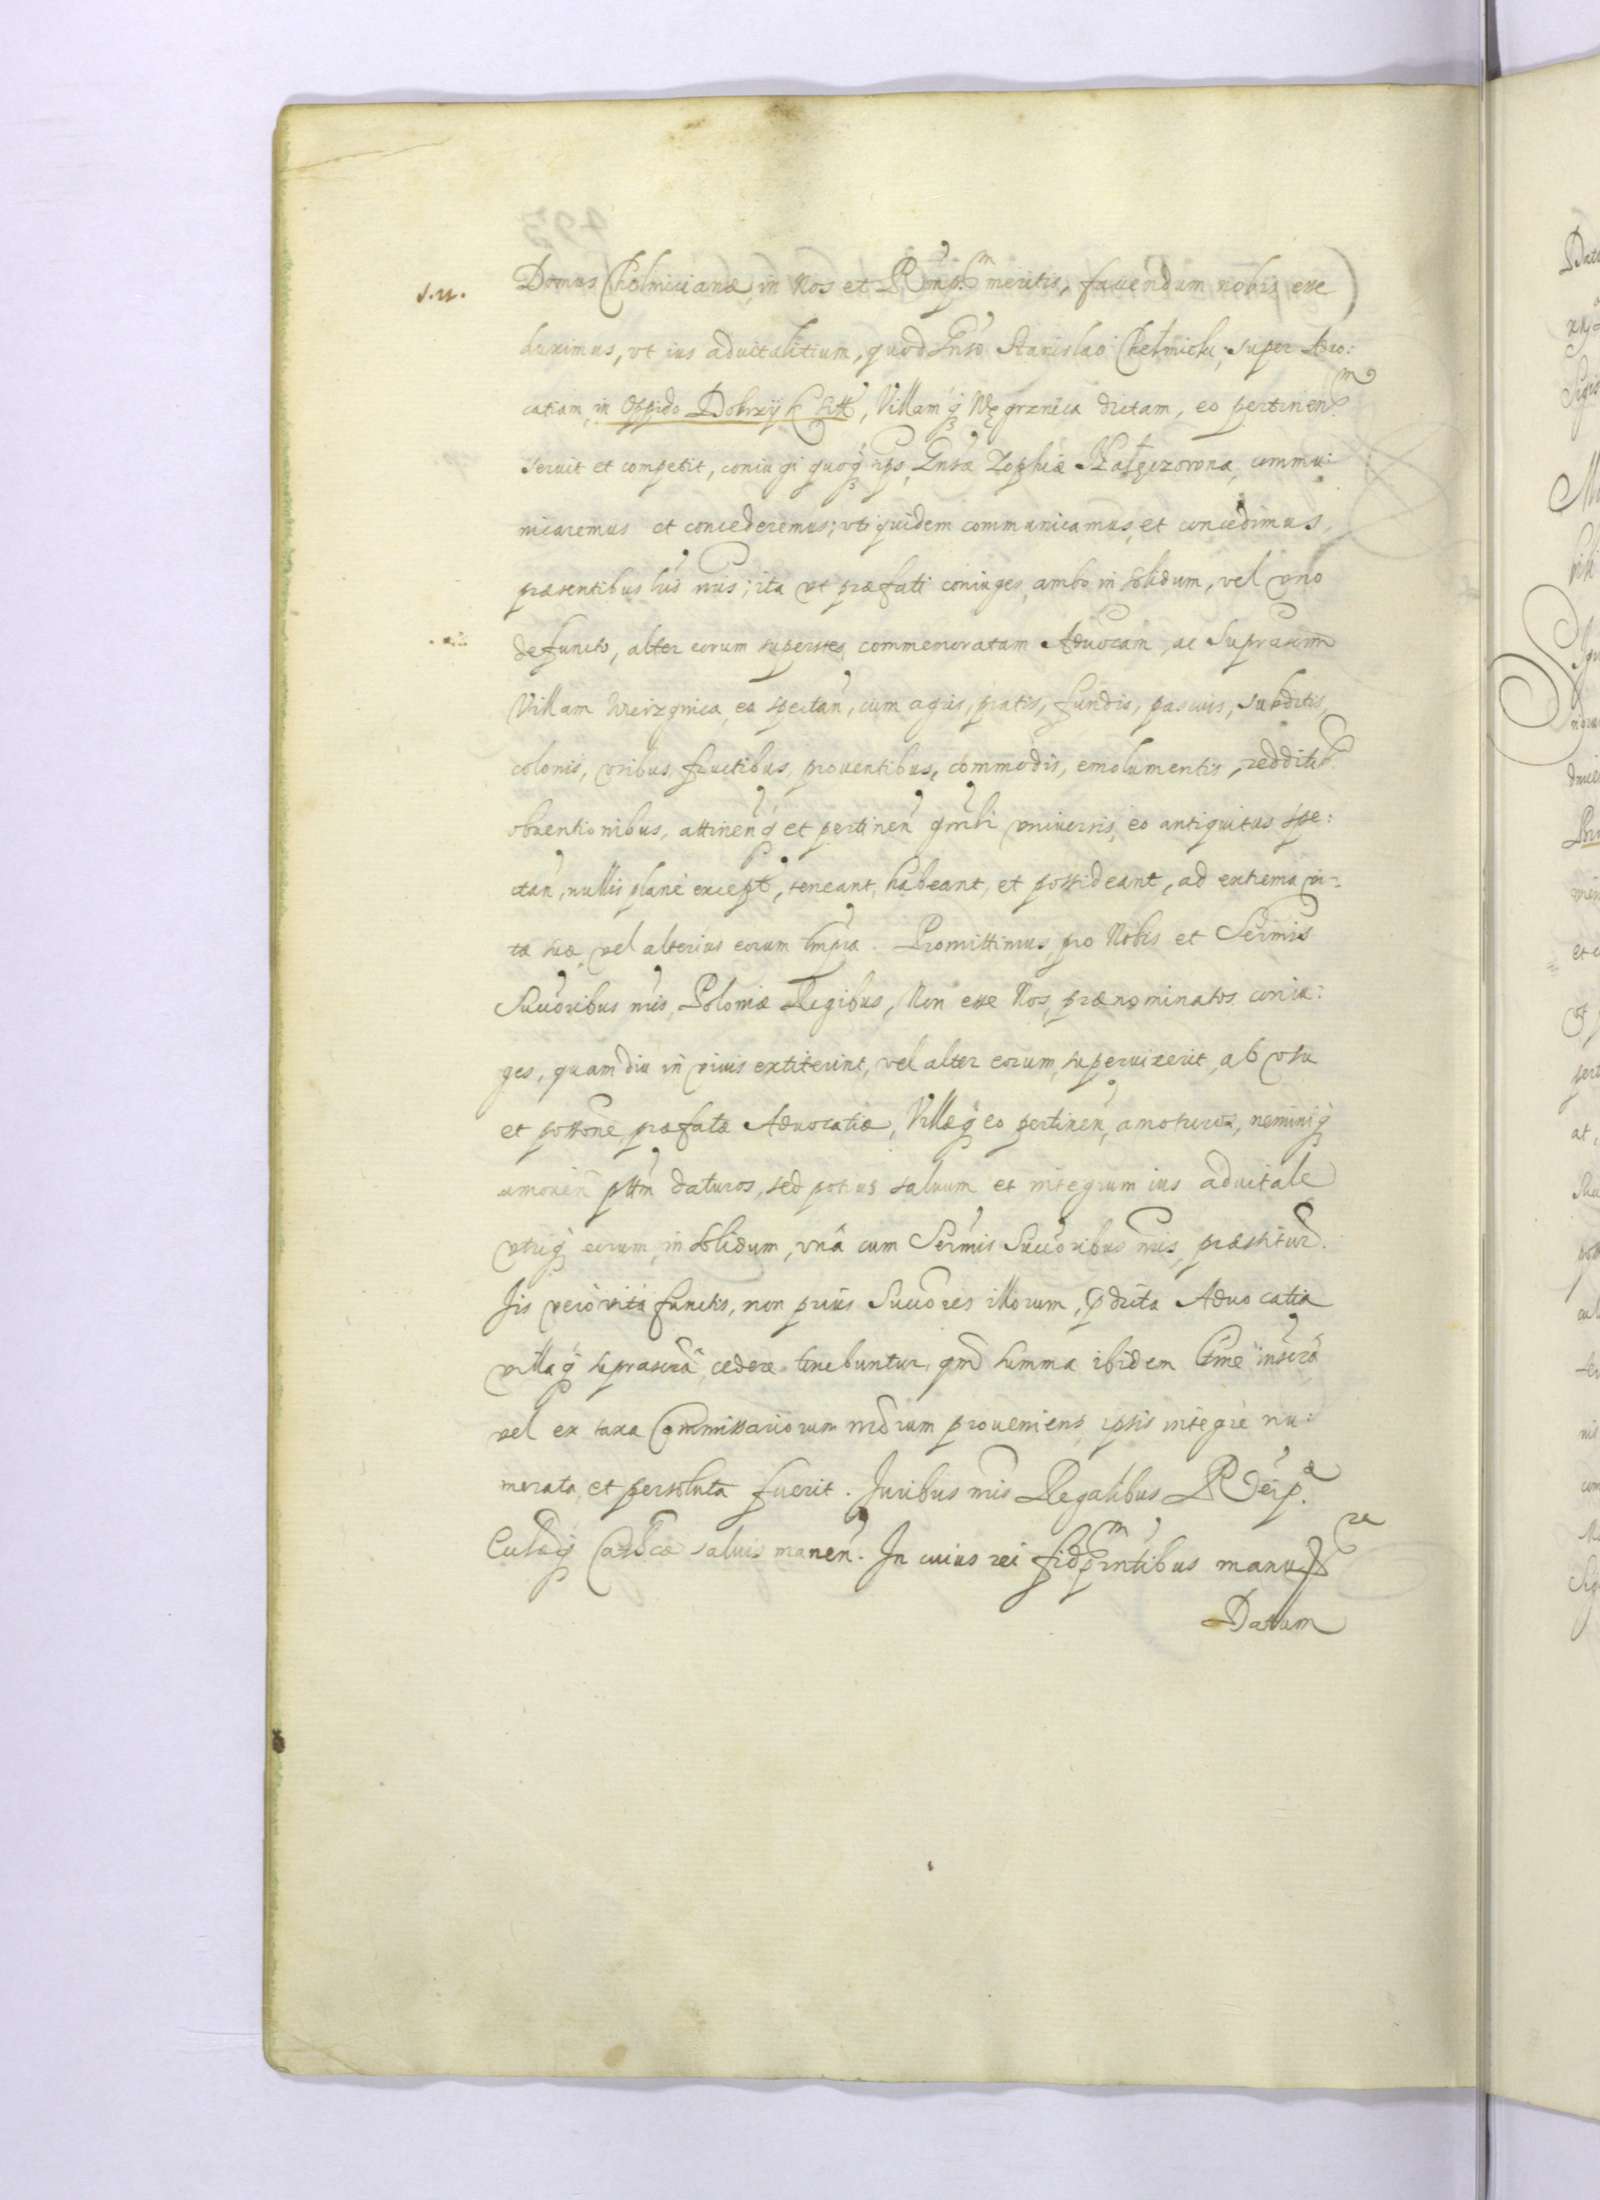 s. n. Domus Chelmicianæ, in Nos et Remp. meritis, fauendum nobis esse
duximus, vt ius aduitalitium, quod Gnso Stanislao Chełmicki, super Aduo:
catiam, in Oppido Dobrzyń sitt, Villamq3 Węgrznica dictam, eo pertinen
seruit et competit, coniugi quoq3 ips, Gnsæ Zophiæ commu:
nicaremus et concederemus; vti quidem communicamus, et concedimus,
præsentibus lris nris; ita vt præfati coniuges, ambo in solidum, vel vno
defuncto, alter eorum superstes, commemoratam Aduocam, ac Suprascrm
Villam eo spectan, cum agris, pratis, fundis, pascuis, subditis,
colonis, vsibus, fructibus, prouentibus, commodis, emolumentis, reddit
obuentionibus, attinenq et pertinen gnrli vniuersis, eo antiquitus spe:
ctan, nullis plane except, teneant, habeant, et possideant, ad extrema vi-
tæ suæ, vel alterius eorum tmpra. Promittimus, pro Nobis et Sermis
Succoribus nris, Poloniæ Regibus, Non esse Nos, prænominatos coniu:
ges, quamdiu in viuis extiterint, vel alter eorum, superuixerit, ab vsu
et possone præfatæ Aduocatiæ, Villæq eo pertinen, amoturos, neminiq
amouen pttm daturos, sed potius saluum et integrum ius aduitale
vtriq eorum, in solidum, vnâ cum Sermis Succoribus nris, præstitur.
Iis vero vita functis, non prius Succores illorum, pdicta Aduocatia
villaq suprascrâ, cedere tenebuntur, qm summa ibidem inscrâ
vel ex taxa Commissariorum nrorum proueniens, ipsis integre nu:
merata, et persoluta fuerit. Iuribus nris Regalibus Reip.
Cathcæ saluis manen. In cuius rei fid pntibus manu
Datum